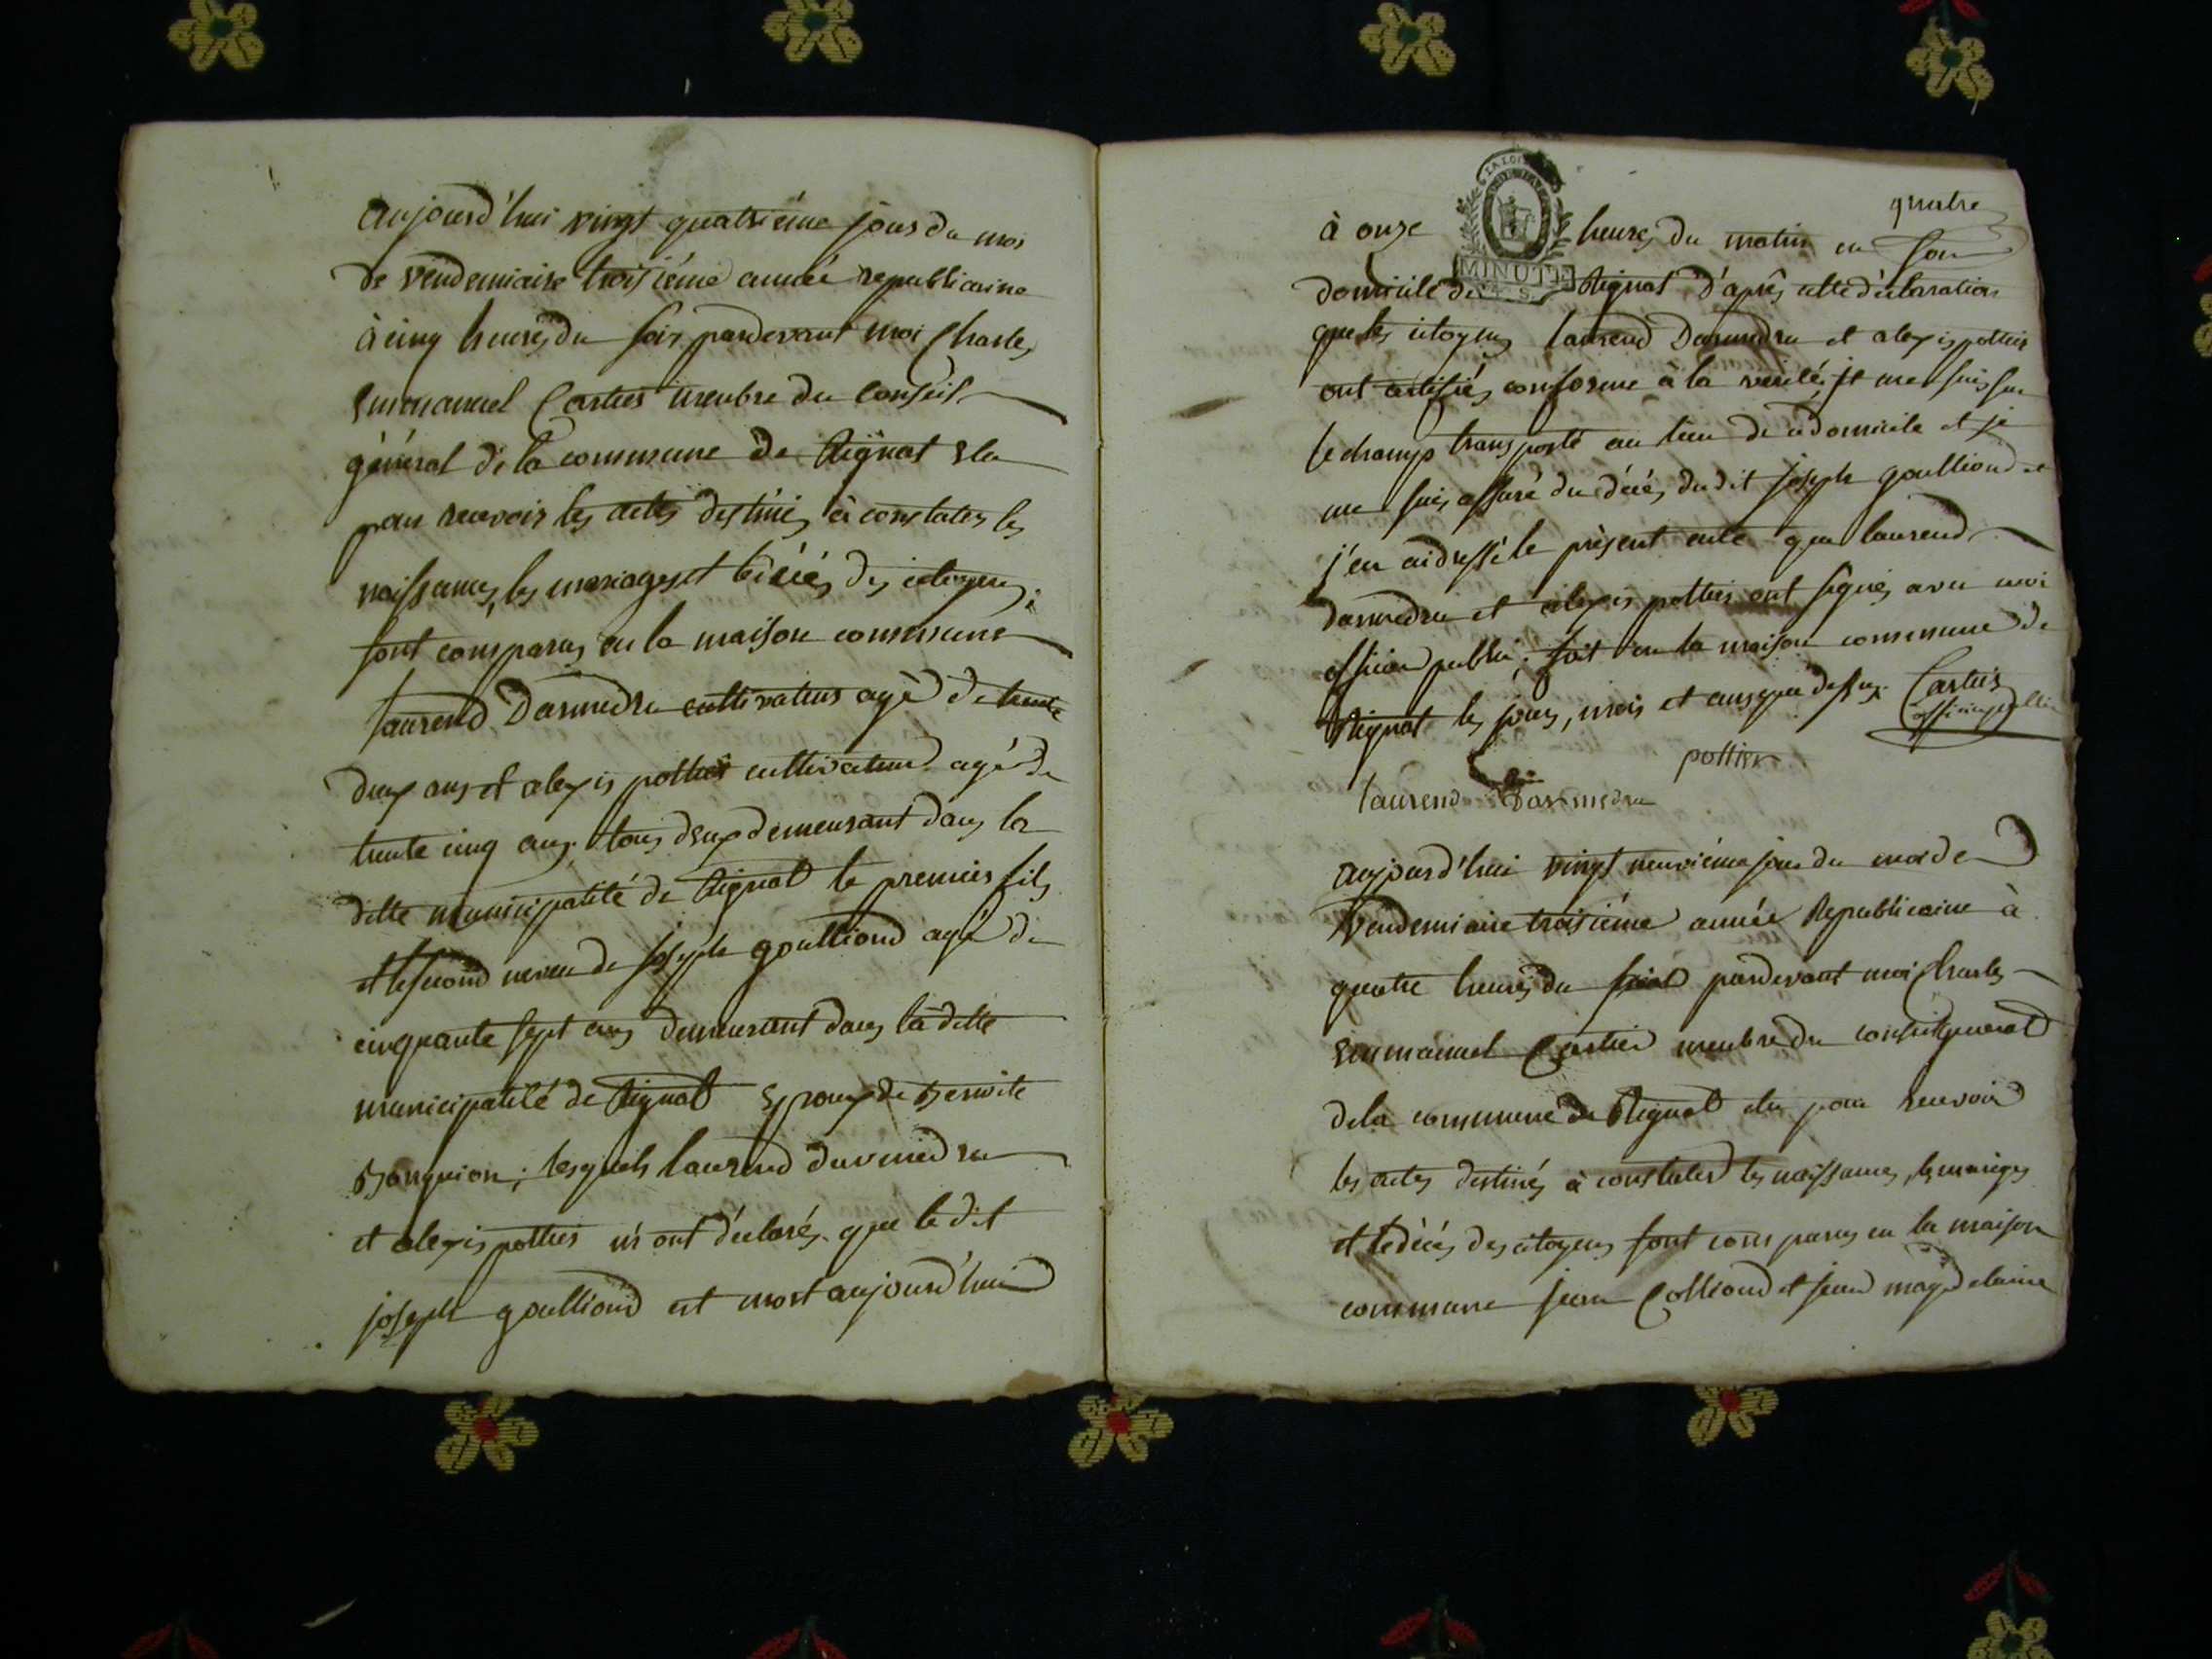 aujourd'hui vingt quatrieme jour du mois
de vendemiaire troisième année republicaine
à cinq heures du soir pardevant moi Charles
Emmanuel Cartier menbre du Conseil
général de la commune de Rignat Elu
pour recevoir les actes destinés à constater les
naissances, les mariages et le décés des citoyens;
sont comparus en la maison commune
laurend Darmedru cultivateur agé de trente
deux ans et alexis pottier cultivateur agé de
trente cinq ans. tous deux demeurant dans la
ditte municipalité de Rignat le premier fils
et le second neveu de joseph goullioud agé de
cinquante sept ans demeurant dans la ditte
municipalité de Rignat Epoux de Benoite
; lesquels laurend darmedru
et alexis pottier m'ont déclarés que le dit
joseph goullioud est mort aujourd'hui
quatre
à onze heures du matin en son
LA LOI
MINUTE
domicile de Rignat d'après cette déclaration
que les citoyens laurend Darmedru et alexis pottier
ont certifiés conforme à la verité, je me suis sur
le champs transporté au lieu de ce domicile et je
me suis assuré du décés du dit joseph goullioud et
j'en ai dressé le présent acte que laurend
darmedru et alexis pottier ont signés avec moi
officier public; fait en la maison commune de
Rignat les jours, mois et ans que dessus. Cartier
officier public
pottier
laurend Darmedru
aujourd'hui vingt neuvième jour du mois de
Vendemiaire troisième année Republicaine à
quatre heures du soir pardevant moi Charles
Emmanuel Cartier menbre du conseil general
de la commune de Rignat elu pour recevoir
les actes destinés à constater les naissances, les mariages
et le décés des citoyens sont comparus en la maison
commune jean Collioud et jean magdelaine